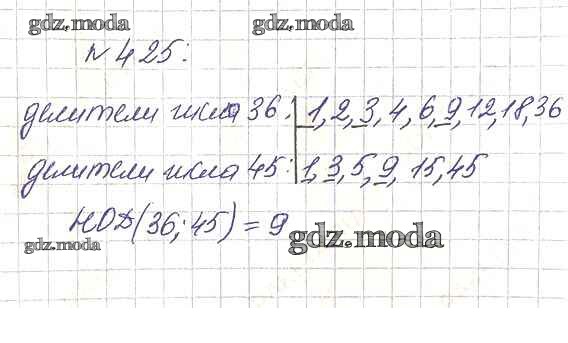 gdz.moda gdz.moda
№ 425:
делители числа 36: 1, 2, 3, 4, 6, 9, 12, 18, 36
делители числа 45: 1, 3, 5, 9, 15, 45
НОД(36; 45) = 9
gdz.moda gdz.moda